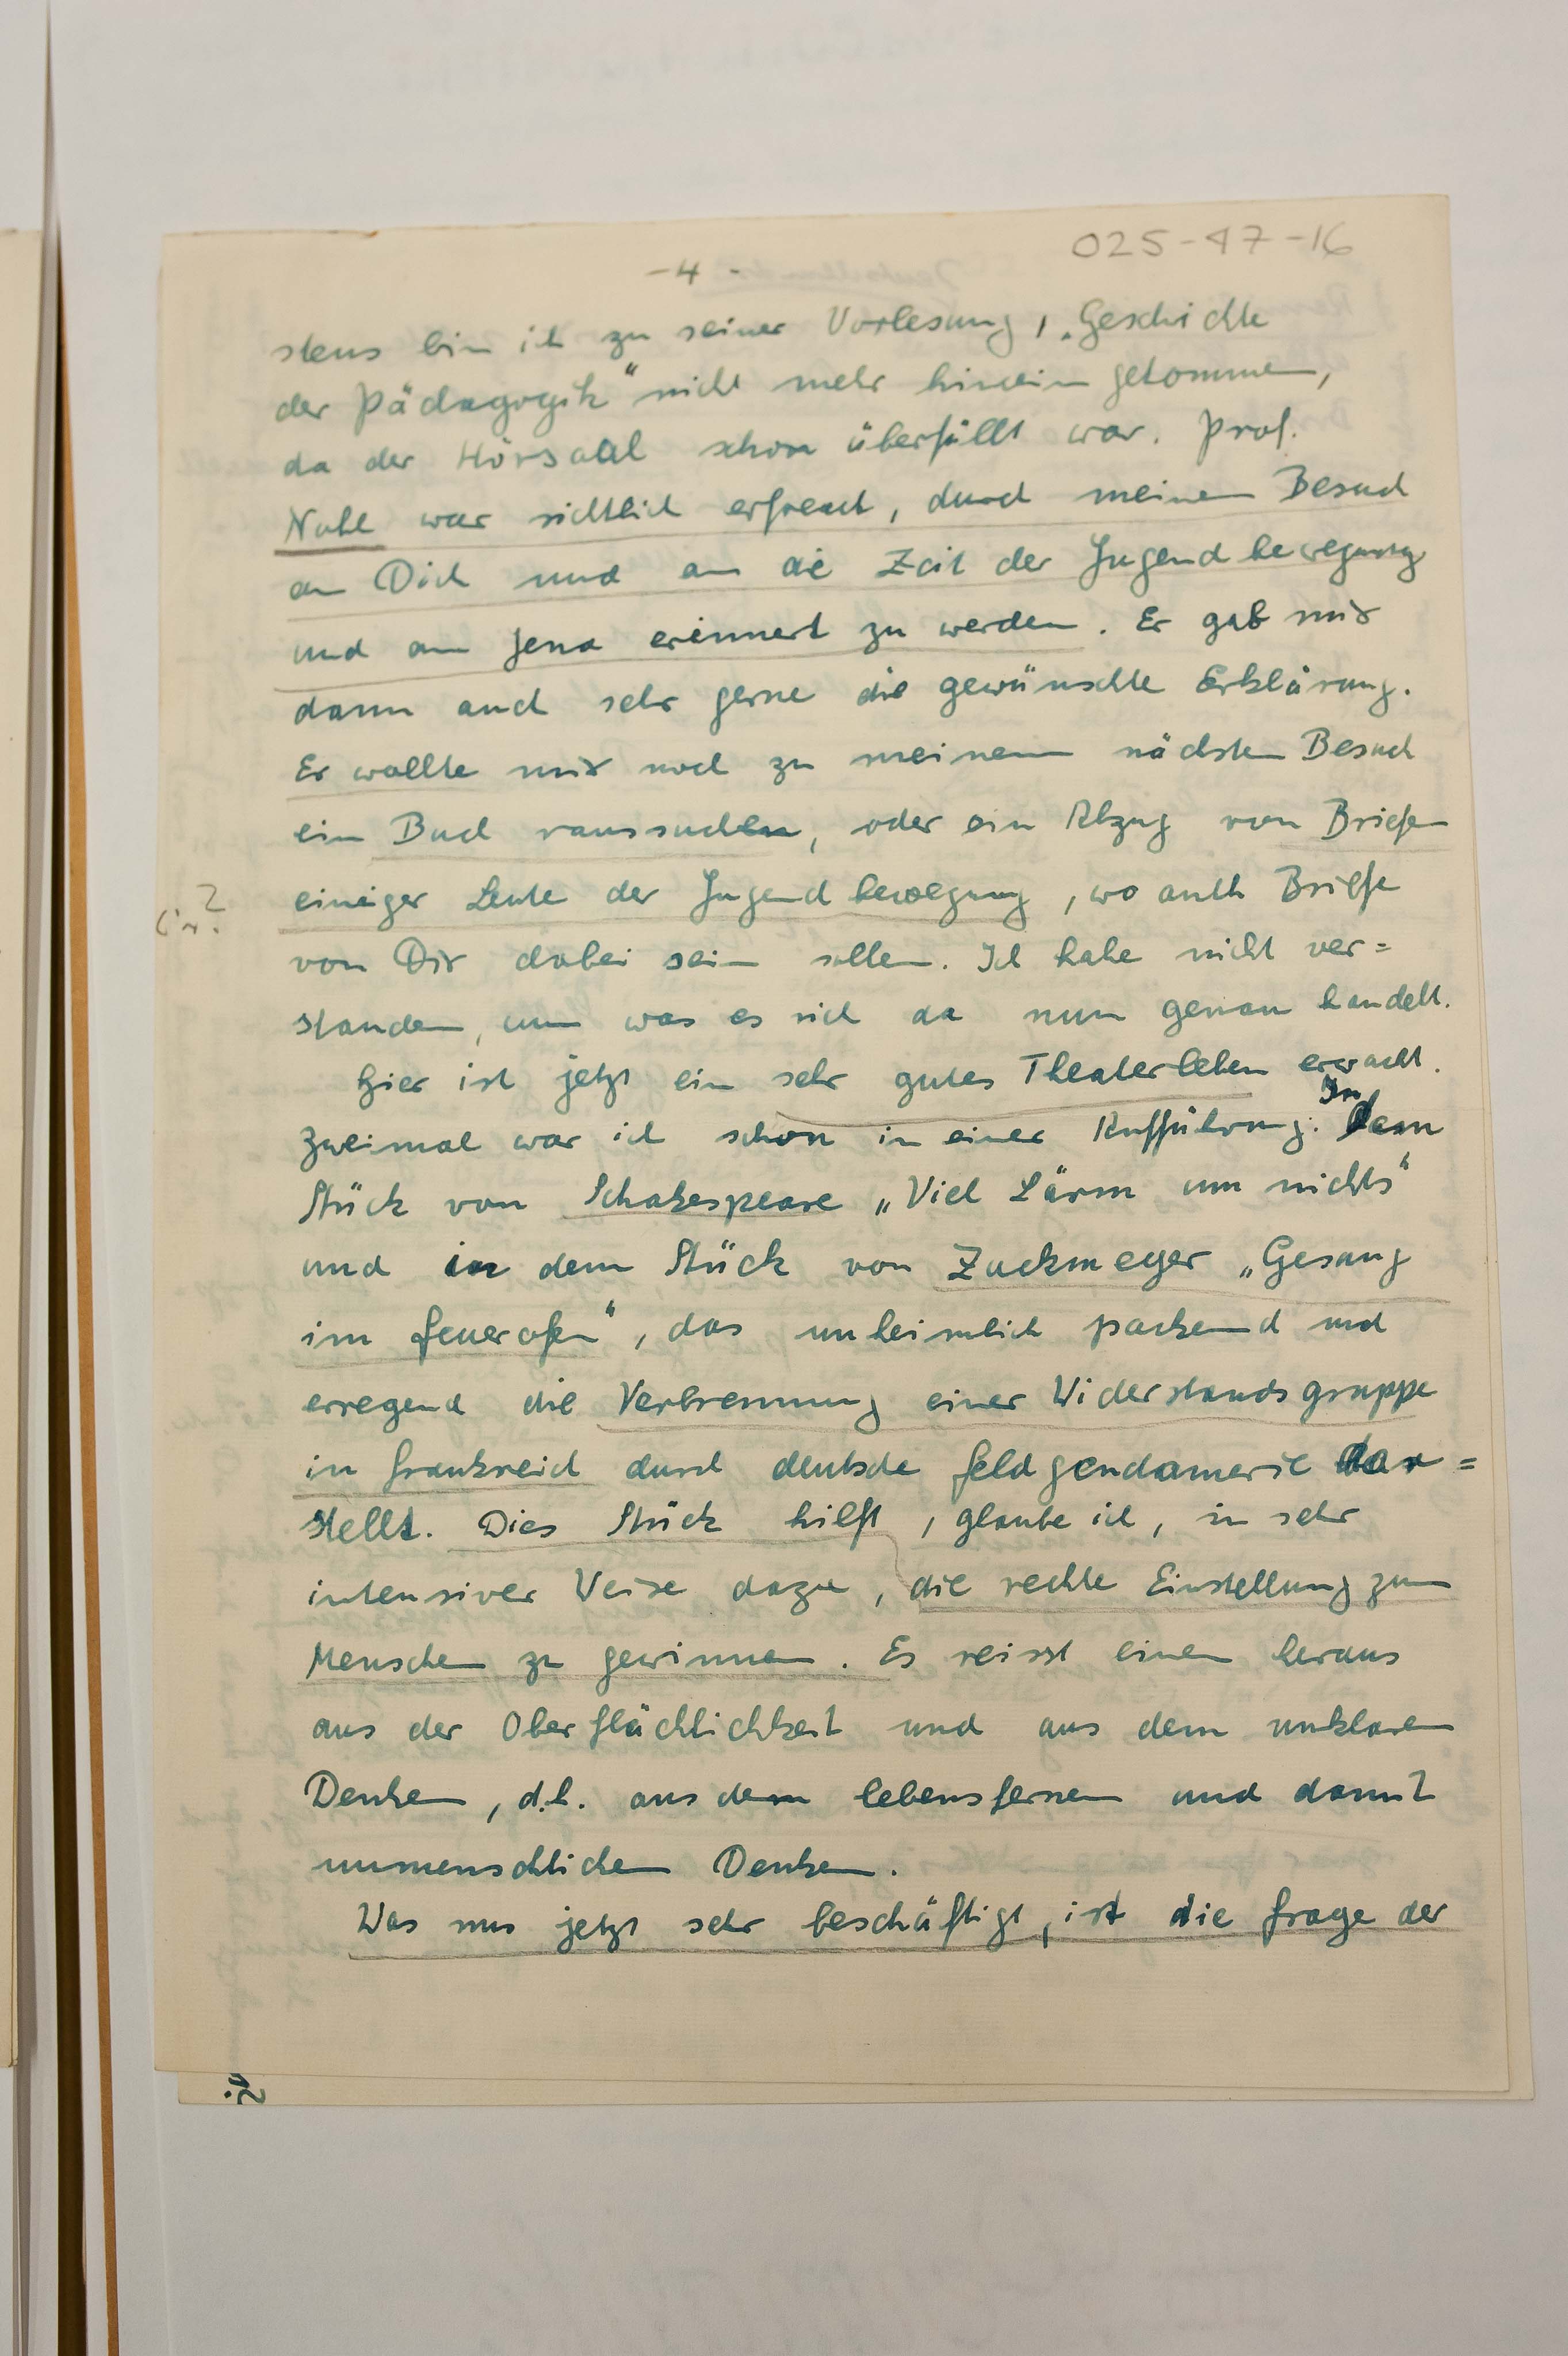 025-47-16
-4-
stens bin ich zu seiner Vorlesung, „Geschichte
der Pädagogik" nicht mehr hinein gekommen,
da der Hörsaal schon überfüllt war. Prof.
Nohl war sichtlich erfreut, durch meinen Besuch
an Dich und an die Zeit der Jugendbewegung
und an Jena erinnert zu werden. Er gab mir
dann auch sehr gerne die gewünschte Erklärung.
Er wollte mir noch zu meinem nächsten Besuch
ein Buch raussuchen, oder ein Abzug von Briefen
einiger Leute der Jugendbewegung, wo auch Briefe
von Dir dabei sein sollen. Ich habe nicht ver=
standen, um was es sich da nun genau handelt.
Hier ist jetzt ein sehr gutes Theaterleben erwacht.
Zweimal war ich schon in einer Aufführung. In dem
Stück von Schakespeare „Viel Lärm um nichts"
und in dem Stück von Zuckmeyer „Gesang
im Feuerofen", das unheimlich packend und
erregend die Verbrennung einer Widerstandsgruppe
in Frankreich durch deutsche Feldgendamerie dar=
stellt. Dies Stück hilft, glaube ich, in sehr
intensiver Weise dazu, die rechte Einstellung zum
Menschen zu gewinnen. Es reisst einen heraus
aus der Oberflächlichkeit und aus dem unklaren
Denken, d.h. aus dem lebensfernen und damit
unmenschlichen Denken.
Was uns jetzt sehr beschäftigt, ist die Frage der